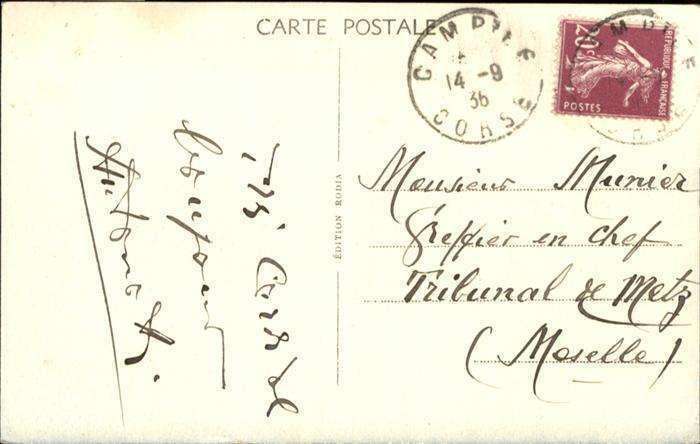 CARTE POSTALE
CAMPILE
14 -9
36
CORSE
20c
REPUBLIQUE FRANÇAISE
POSTES
Très Cordial
bonjour
ÉDITION RODIA
Monsieur Munier
Greffier en chef
Tribunal de Metz
(Moselle)